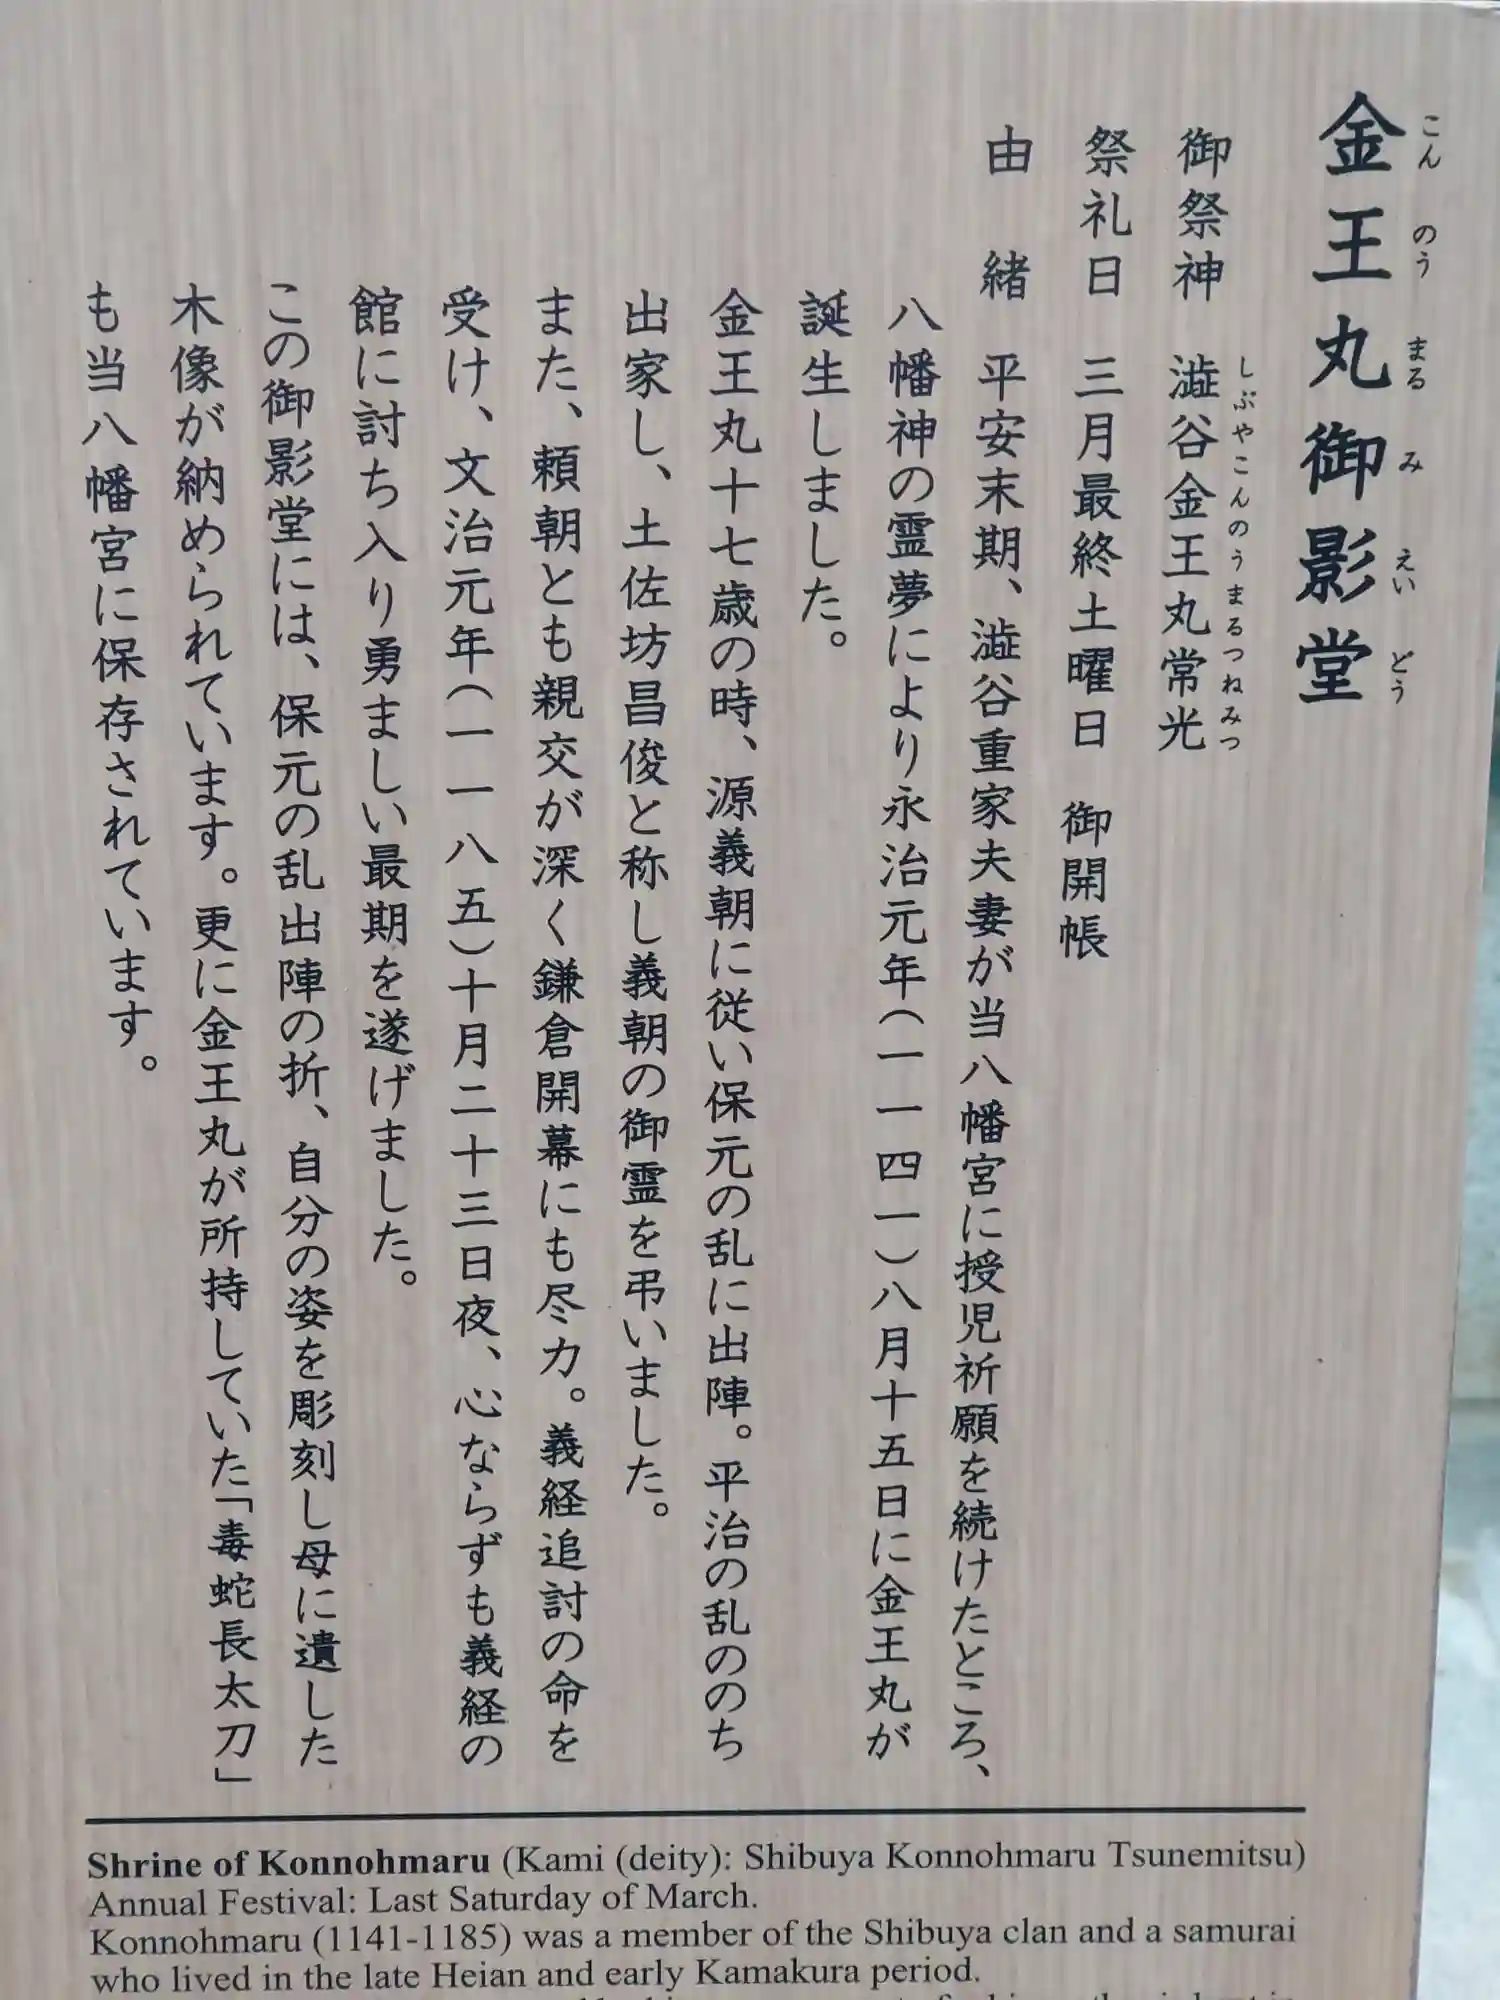 金王丸御影堂
こんのうまるみえいどう
御祭神 澁谷金王丸常光
しぶやこんのうまるつねみつ
祭礼日 三月最終土曜日 御開帳
由緒 平安末期、澁谷重家夫妻が当八幡宮に授児祈願を続けたところ、
八幡神の霊夢により永治元年(一一四一)八月十五日に金王丸が
誕生しました。
金王丸十七歳の時、源義朝に従い保元の乱に出陣。平治の乱ののち
出家し、土佐坊昌俊と称し義朝の御霊を弔いました。
また、頼朝とも親交が深く鎌倉開幕にも尽力。義経追討の命を
受け、文治元年(一一八五)十月二十三日夜、心ならずも義経の
館に討ち入り勇ましい最期を遂げました。
この御影堂には、保元の乱出陣の折、自分の姿を彫刻し母に遺した
木像が納められています。更に金王丸が所持していた「毒蛇長太刀」
も当八幡宮に保存されています。
Shrine of Konnohmaru (Kami (deity): Shibuya Konnohmaru Tsunemitsu)
Annual Festival: Last Saturday of March.
Konnohmaru (1141-1185) was a member of the Shibuya clan and a samurai
who lived in the late Heian and early Kamakura period.